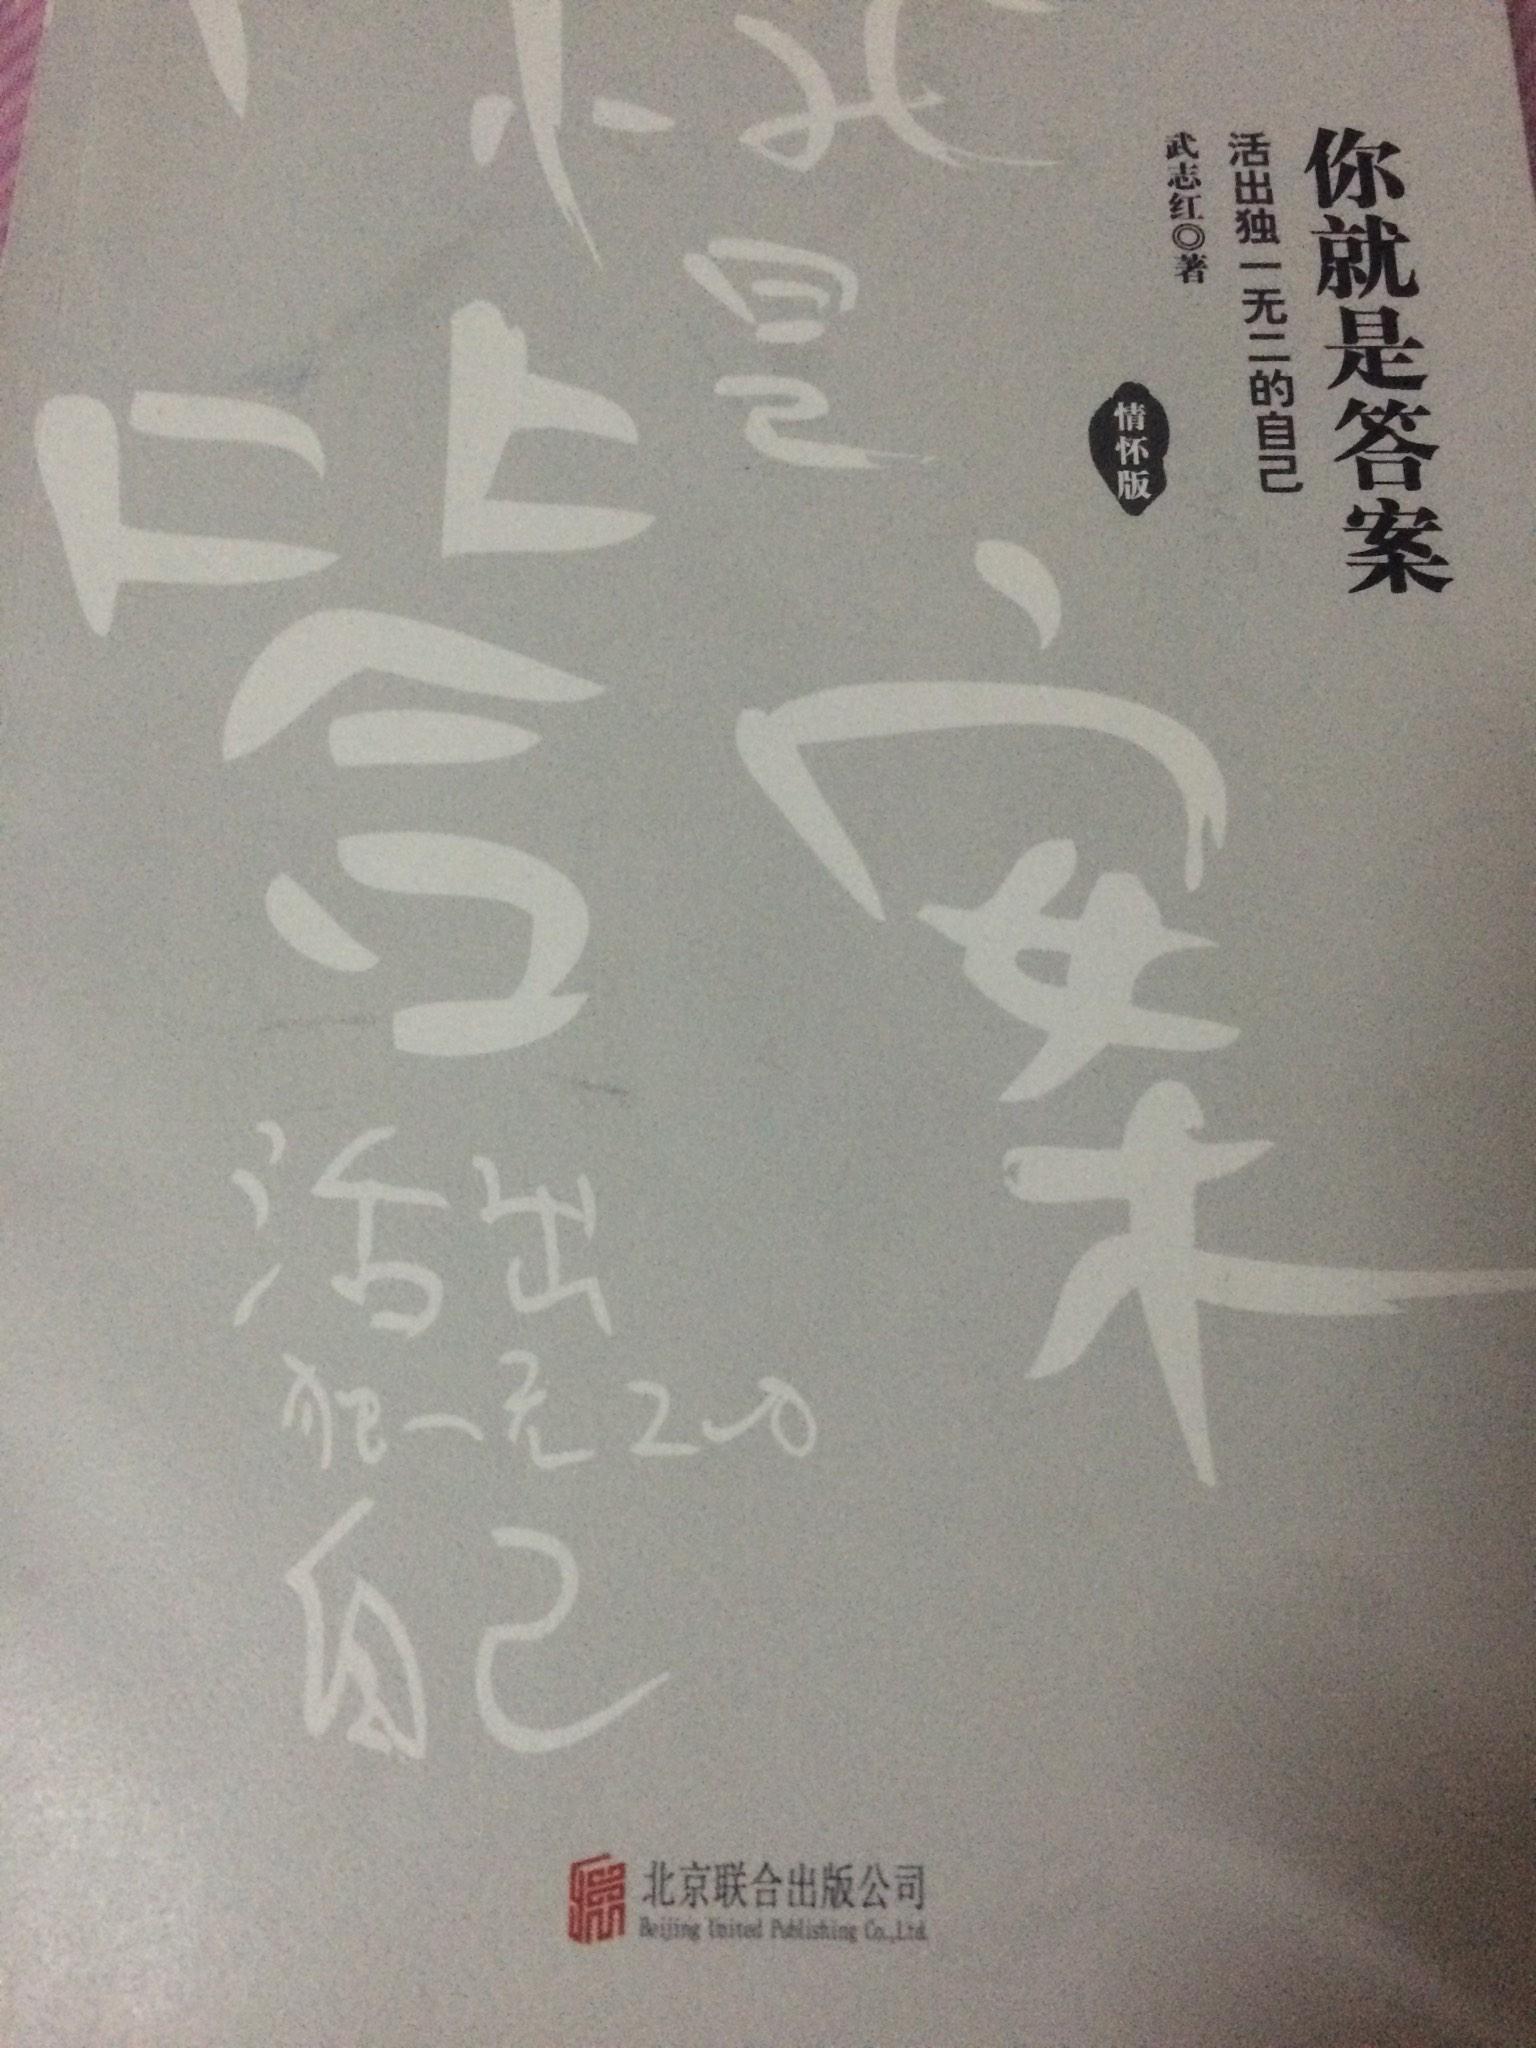 你就是答案
活出独一无二的自己
武志红◎著
情怀版
是
答案
活出
独一无二的
自己
北京联合出版公司
Beijing United Publishing Co.,Ltd.